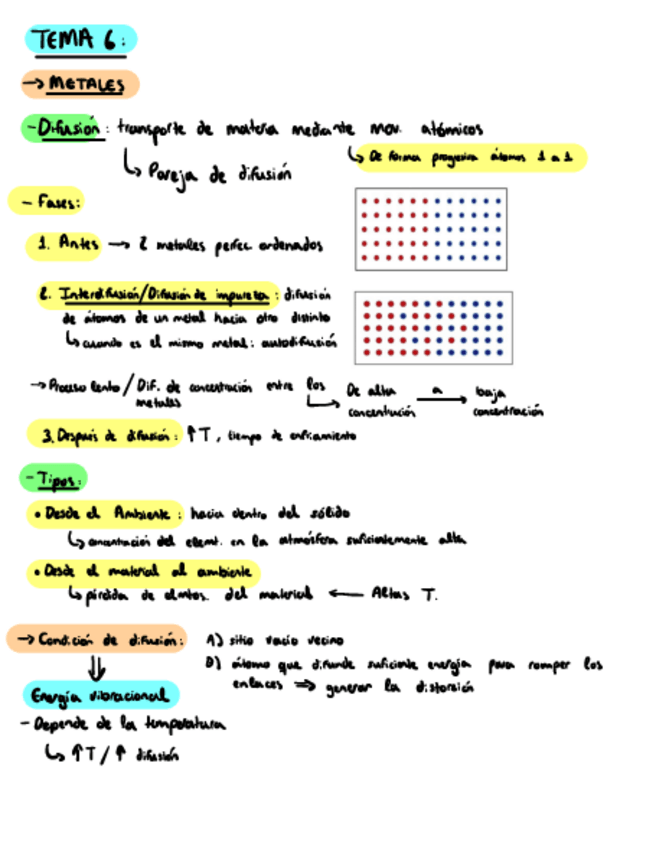 TEMA 6:
→ METALES
- Difusión: transporte de materia mediante mov. atómicos
↳ De forma progresiva átomos 1 a 1
↳ Pareja de difusión
- Fases:
1. Antes → 2 metales perfec. ordenados
2. Interdifusión/Difusión de impureza: difusión
de átomos de un metal hacia otro distinto
↳ cuando es el mismo metal: autodifusión
→ Proceso lento / Dif. de concentración entre los
metales
↳ De alta concentración a → baja concentración
3. Después de difusión: ↑T, tiempo de enfriamiento
- Tipos:
• Desde el Ambiente: hacia dentro del sólido
↳ concentración del elemt. en la atmósfera suficientemente alta
• Desde el material al ambiente
↳ pérdida de elmtos. del material ← Altas T.
→ Condición de difusión: A) sitio vacío vecino
B) átomo que difunde suficiente energía para romper los
enlaces ⇒ generar la distorsión
⇓
Energía vibracional
- Depende de la temperatura
↳ ↑T / ↑ difusión